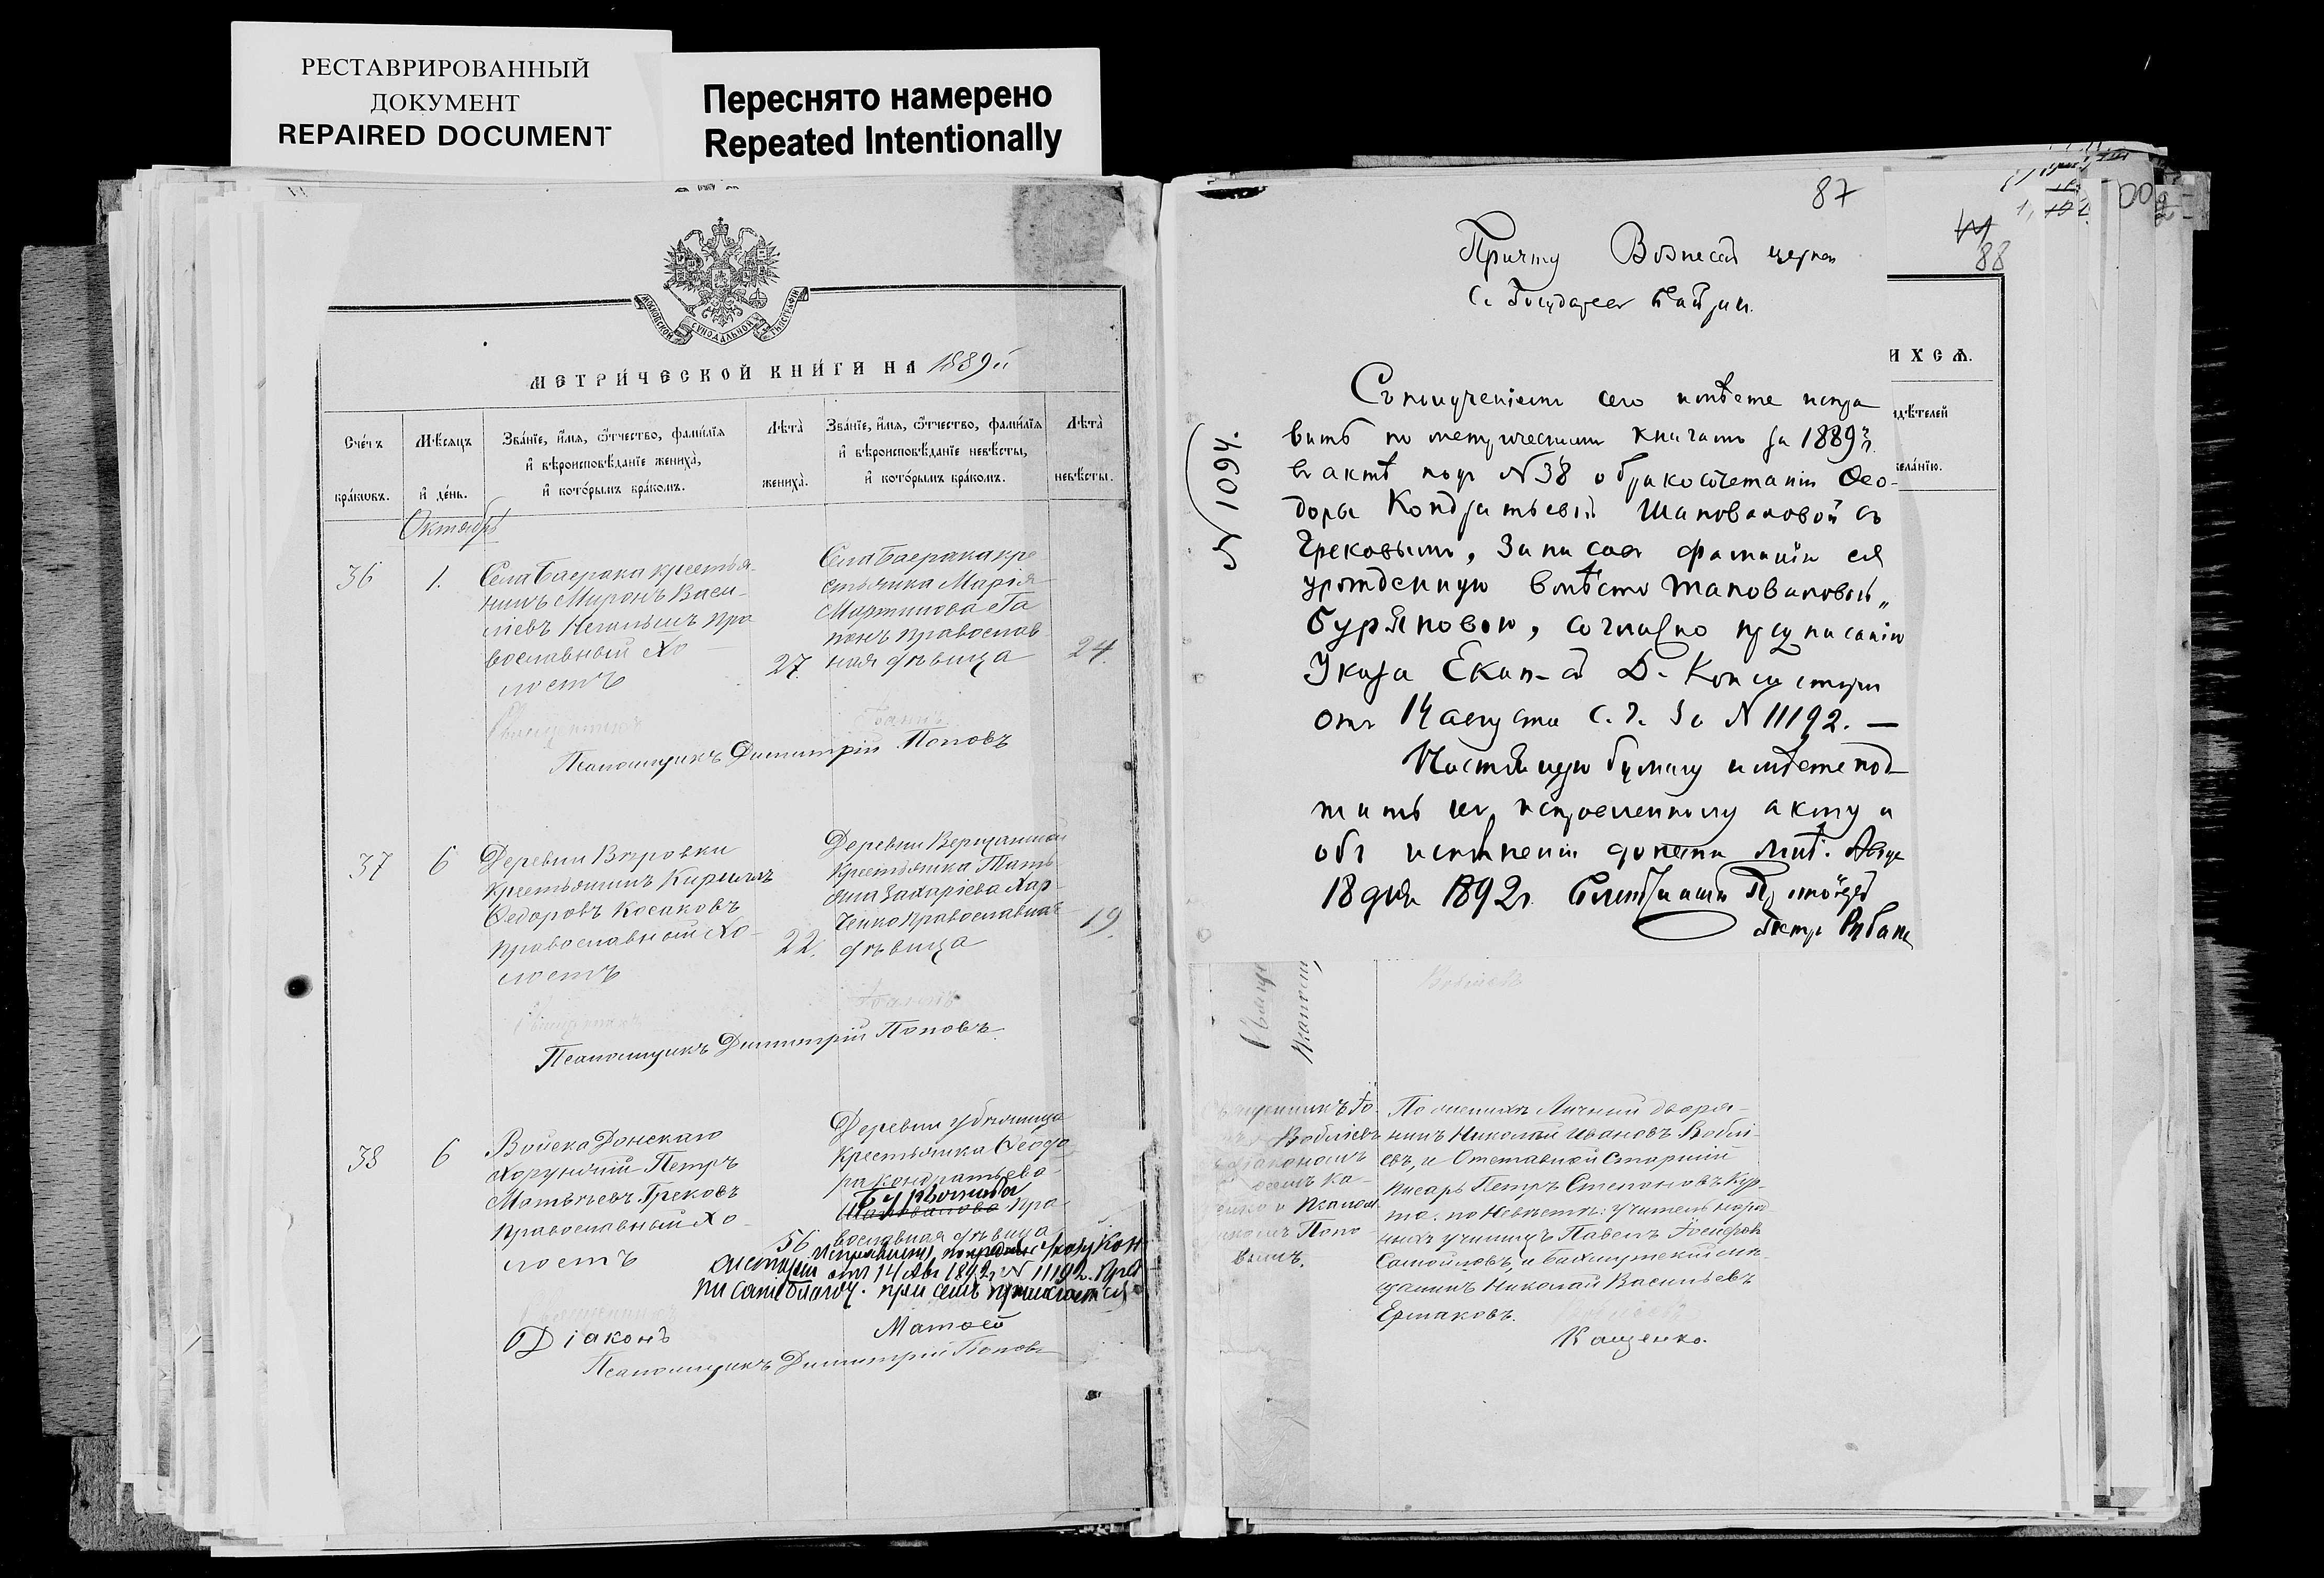 РЕСТАВРИРОВАННЫЙ
ДОКУМЕНТ
REPAIRED DOCUMENT
Переснято намерено
Repeated Intentionally
МОСКОВСКОЙ СУНОДАЛЬНОЙ ТИПОГРАФІИ
МЕТРИ́ЧЕСКОЙ КНИ́ГИ НА 1889й
Сче́тъ
бра́ковъ.
Мѣсяцъ
и҆ де́нь.
Зва́нїе, и҆́мя, ѻ҆́тчество, фами́лїя
и҆ вѣроисповѣ́данїе жениха̀,
и҆ кото́рымъ бра́комъ.
Лѣта̀
жениха̀.
Зва́нїе, и҆́мя, ѻ҆́тчество, фами́лїя
и҆ вѣроисповѣ́данїе невѣ́сты,
и҆ кото́рымъ бра́комъ.
Лѣта̀
невѣ́сты.
Октябрь
36
1.
Села Баерака крестья-
нинъ Миронъ Васи-
ліевъ пра
вославный хо-
лостъ
27.
Села Баерака кре
стьянка Марія
Мартинова Га
понъ православ
ная дѣвица
24.
Псаломщикъ Димитрій Поповъ
37
6
Деревни Вѣровки
крестьянинъ Кириллъ
Ѳедоровъ Косаковъ
православный хо-
лостъ
22.
Деревни
крестьянка Тать
яна Захаріева Хар-
ченко православная
дѣвица
19.
Псаломщикъ Димитрій Поповъ.
38
6
Войска Донскаго
хорунжій Петръ
Матвѣевъ Грековъ
православный хо-
лостъ
56
Деревни
крестьянка Ѳеодо
ра Кондратьева
Бурьянова
Шаповалова пра
вославная дѣвица
Исправлено Указу Кон
систоріи отъ 14 Авг 1892 г. N 11192. Пред
писаніе при семъ прилагается
Діаконъ Матвей
Псаломщикъ Димитрій Поповъ
87
88
Причту Вознесен церкви
С. Государев Байрак.
N 1094.
Съ полученіемъ сего имѣете испра
вить по метрическимъ книгамъ за 1889 г.
въ актѣ подъ N 38 о бракосочетаніи Ѳео-
доры Кондратьевой Шаповаловой съ
Грековымъ, записавъ фамилію ея
урожденную вмѣсто Шаповаловой „
Бурьяновою, согласно предписанію
Указа Екат-ой Д. Консисторіи
отъ 14 августа с. г. за N 11192. —
Настоящую бумагу имѣете подъ
шить къ исправленному акту и
объ исполненіи донести мнѣ. Авгус
18 дня 1892 г.
ИХСѦ.
идѣ́телей
жела́нїю.
Священникъ Іо-
Воблiевъ
діакономъ
Ка-
щенко и псалом
щикомъ Попо
вымъ.
По женихѣ Личный дворя-
нинъ Николай Ивановъ Воблі-
евъ, и Отставной Старшій
писарь Петръ Степановъ Кур-
та. по Невѣстѣ: учитель народ
ныхъ училищъ Павелъ Іосифовъ
Самойловъ, и Бахмутскій мѣ-
щанинъ Николай Васильевъ
Ермаковъ.
Кащенко.